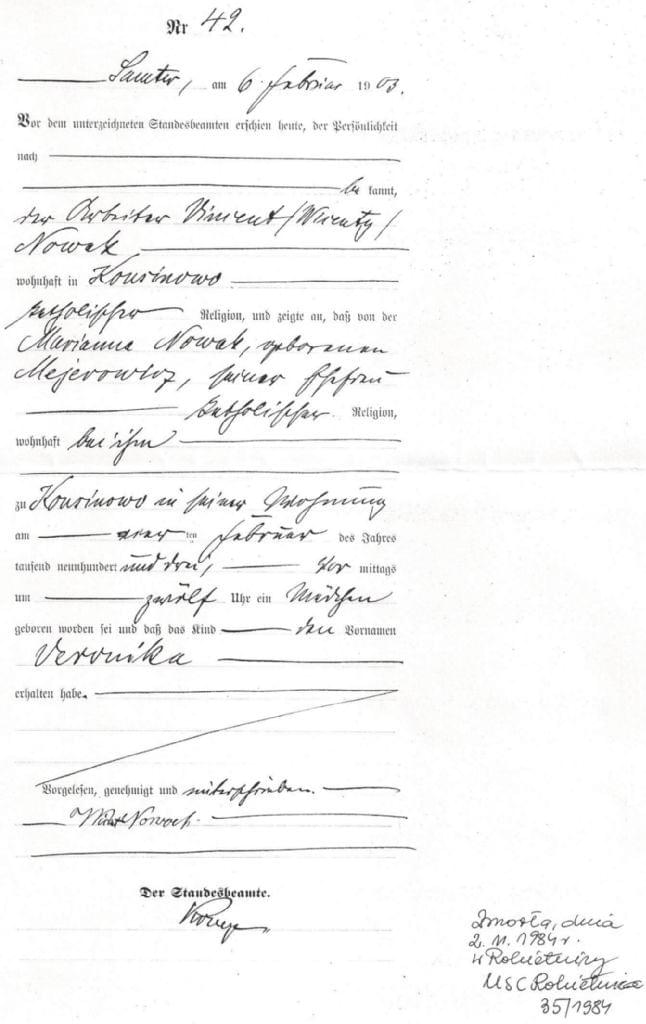 Nr 42.
Samter, am 6. Februar 1903.
Vor dem unterzeichneten Standesbeamten erschien heute, der Persönlichkeit
nach
be kannt,
der Arbeiter Vincent /Wicenty/
Nowak
wohnhaft in Konsinowo
katholischer Religion, und zeigte an, daß von der
Marianna Nowak, geborenen
Mejerowicz, seiner Ehefrau
katholischer Religion,
wohnhaft bei ihm
zu Konsinowo in seiner Wohnung
am vier ten Februar des Jahres
tausend neunhundert und drei, Vor mittags
um zwölf Uhr ein Mädchen
geboren worden sei und daß das Kind den Vornamen
Veronika
erhalten habe.
Vorgelesen, genehmigt und unterschrieben.
Nowack
Der Standesbeamte.
Zmarła, dnia
2.11.1984 r.
w Rokietnicy
USC Rokietnica
35/1984